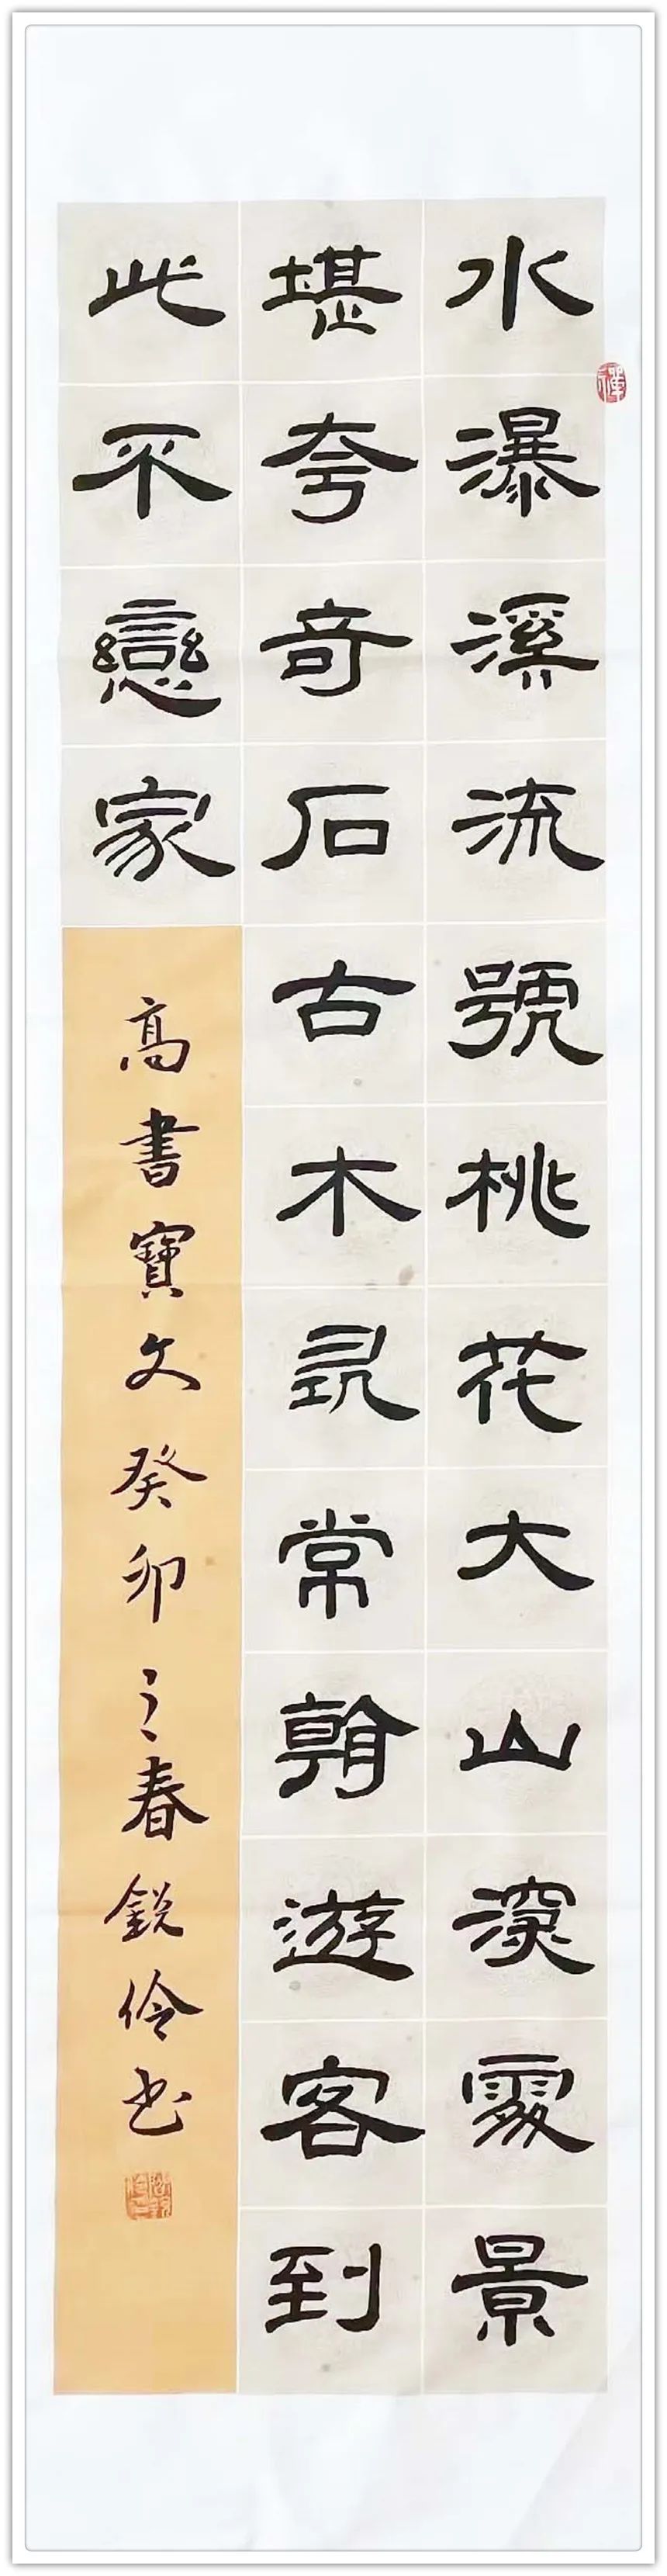 水瀑溪流號桃花大山深處景
堪夸奇石古木尋常朝遊客到
此不戀家
高書寶文癸卯之春銳伶书